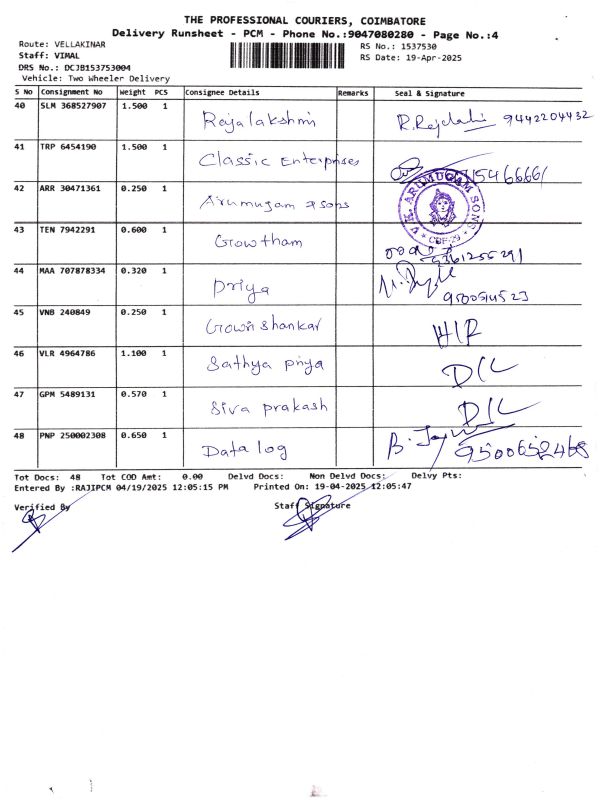 THE PROFESSIONAL COURIERS, COIMBATORE
Delivery Runsheet - PCM - Phone No.:9047080280 - Page No.:4
Route: VELLAKINAR
RS No.: 1537530
Staff: VIMAL
RS Date: 19-Apr-2025
DRS No.: DCJB153753004
Vehicle: Two Wheeler Delivery
S No Consignment No Weight PCS Consignee Details Remarks Seal & Signature
40 SLM 368527907 1.500 1 Rajalakshmi R. Rajalakshmi 9442204432
41 TRP 6454190 1.500 1 Classic Enterprises
42 ARR 30471361 0.250 1 Arumugam & sons V.K. ARUMUGAM SONS * CBE-29 *
43 TEN 7942291 0.600 1 Gowtham
44 MAA 707878334 0.320 1 Priya
45 VNB 240849 0.250 1 Gowri Shankar H/R
46 VLR 4964786 1.100 1 Sathya priya D/L
47 GPM 5489131 0.570 1 Siva prakash D/L
48 PNP 250002308 0.650 1 Data log 9500652468
Tot Docs: 48 Tot COD Amt: 0.00 Delvd Docs: Non Delvd Docs: Delvy Pts:
Entered By :RAJIPCM 04/19/2025 12:05:15 PM Printed On: 19-04-2025 12:05:47
Verified By Staff Signature